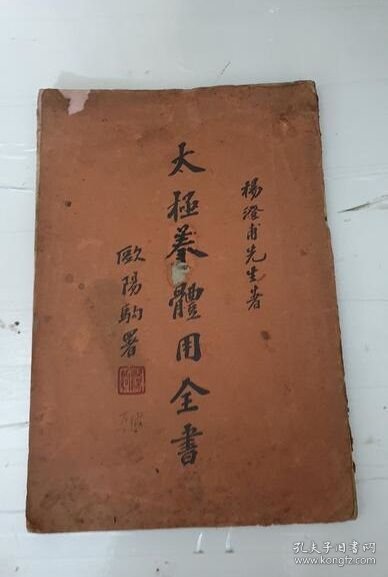 楊澄甫先生著
太極拳體用全書
歐陽駒署
孔夫子旧书网
www.kongfz.com